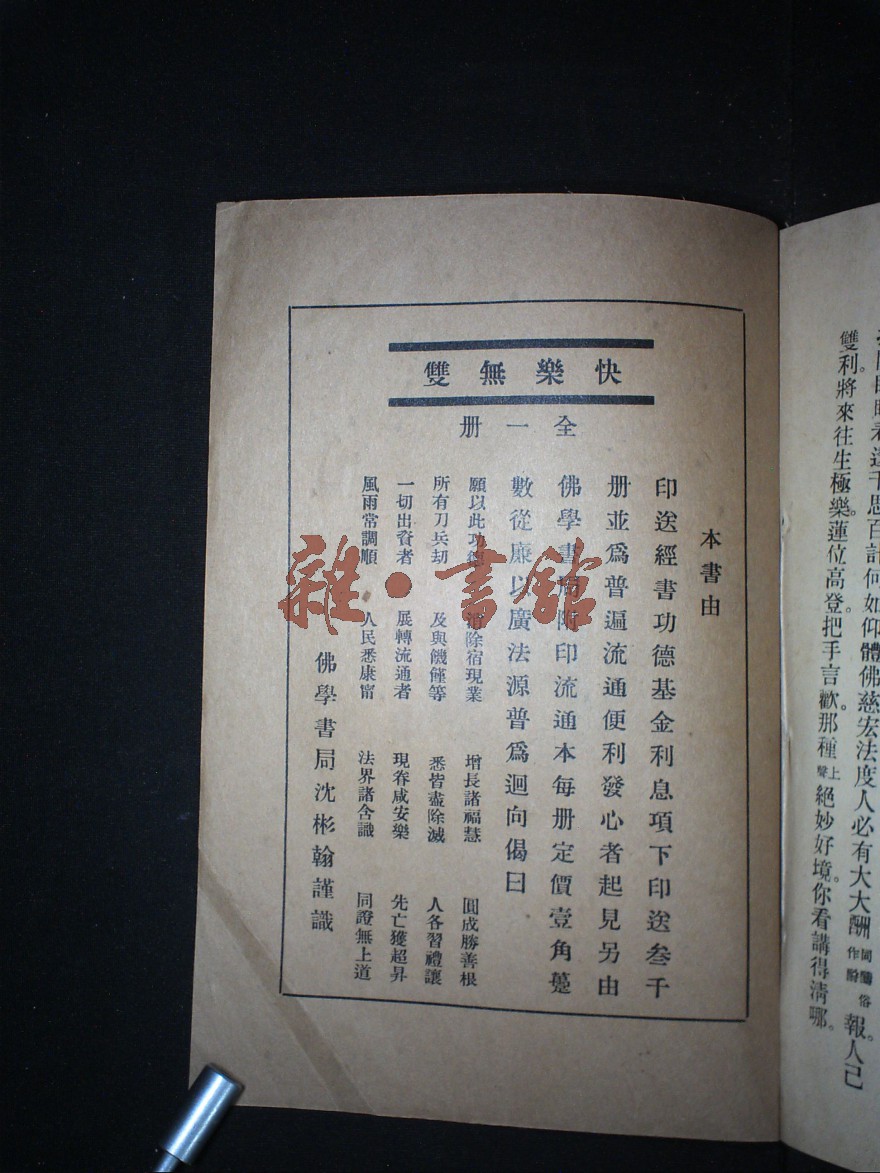 千思百計何如仰體佛慈宏法度人必有大大酬同醻俗作酧報。人己
雙利。將來往生極樂。蓮位高登。把手言歡。那種上聲絕妙好境。你看講得清哪。
快樂無雙
全一册
本書由
印送經書功德基金利息項下印送叁千
册並爲普遍流通便利發心者起見另由
佛學書局附印流通本每册定價壹角躉
數從廉以廣法源普爲迴向偈曰
願以此功德 消除宿現業 增長諸福慧 圓成勝善根
所有刀兵劫 及與饑饉等 悉皆盡除滅 人各習禮讓
一切出資者 展轉流通者 現眷咸安樂 先亡獲超昇
風雨常調順 人民悉康甯 法界諸含識 同證無上道
佛學書局沈彬翰謹識
雜·書館